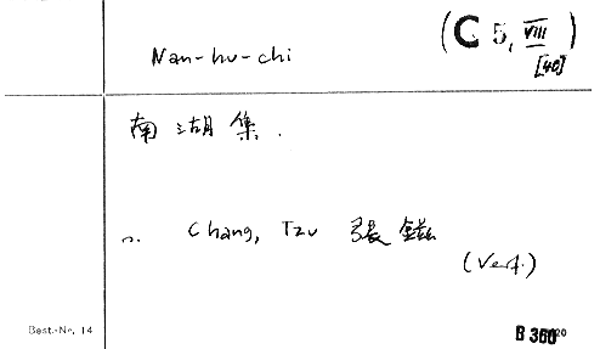 Nan-hu-chi (C 5, VIII)
[40]
南湖集.
n. Chang, Tzu 張鎡
(Verf.)
Best.-Nr. 14 B 360²⁰